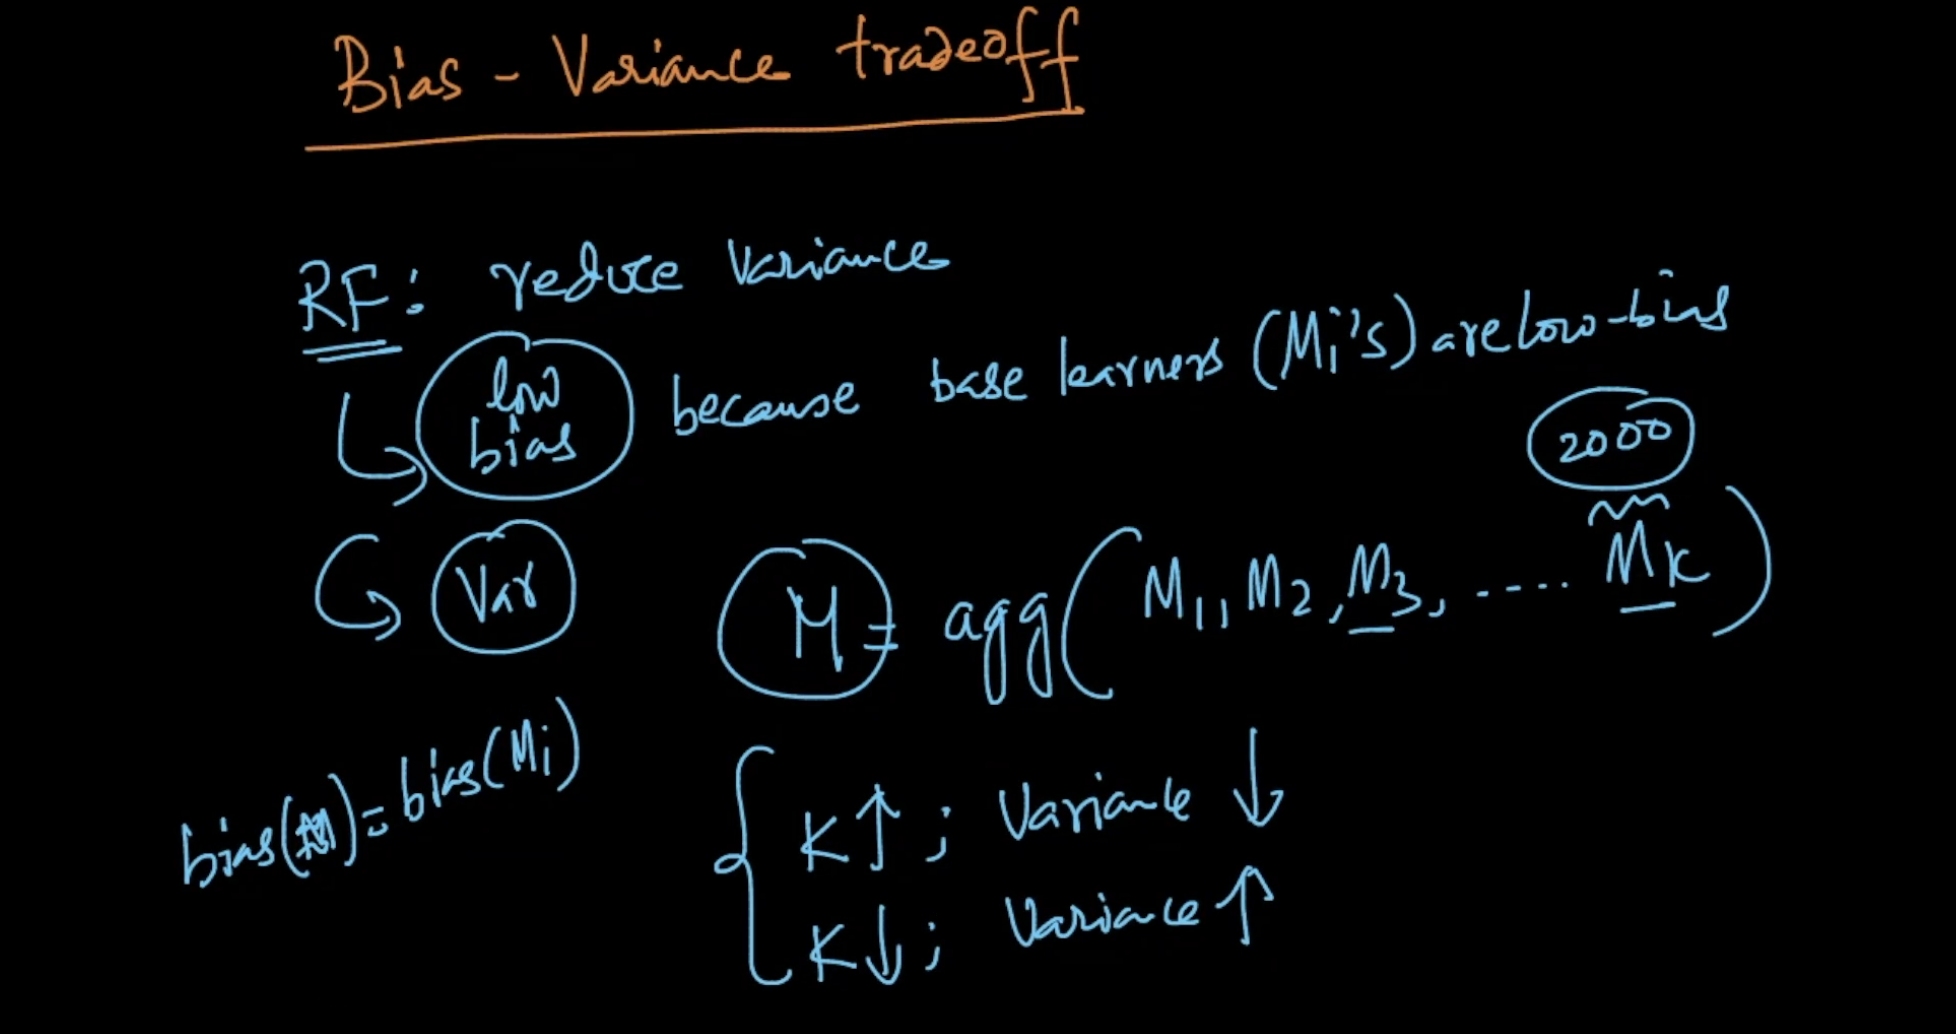 Bias - Variance tradeoff
RF: reduce variance
low bias because base learners (Mi's) are low-bias
2000
Var
M = agg(M1, M2, M3, ..... Mk)
bias(M) = bias(Mi)
K↑; Variance ↓
K↓; Variance ↑